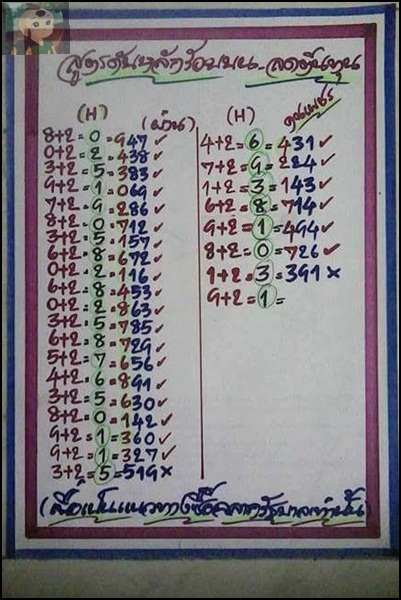 สูตรดับหลักร้อยบน..ลดต้นทุน
(H) (ผ่าน)
8+2=0=947✓
0+2=2=438✓
3+2=5=383✓
9+2=1=069✓
7+2=9=286✓
8+2=0=712✓
3+2=5=157✓
6+2=8=672✓
0+2=2=116✓
6+2=8=453✓
0+2=2=863✓
3+2=5=785✓
6+2=8=729✓
5+2=7=656✓
4+2=6=891✓
3+2=5=630✓
8+2=0=142✓
9+2=1=360✓
9+2=1=327✓
3+2=5=519×
(H)
4+2=6=431✓
7+2=9=224✓
1+2=3=143✓
6+2=8=714✓
9+2=1=494✓
8+2=0=726✓
1+2=3=391×
9+2=1=
(เพื่อเป็นแนวทางซื้อสลากรัฐบาลเท่านั้น)